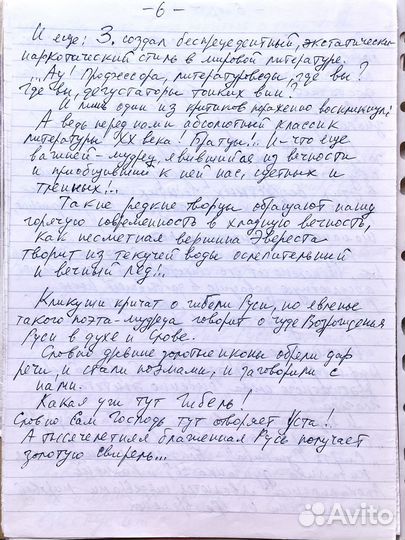 -6-
И еще: З. создал беспрецедентный, экстатически-
наркотический стиль в мировой литературе.
...Ау! Профессора, литературоведы, где вы?
Где вы, дегустаторы тонких вин?
И лишь один из критиков пораженно воскликнул:
А ведь перед нами абсолютный классик
литературы XX века! Братцы!.. И — что еще
важней — мудрец, явившийся из вечности
и приобщивший к ней нас, суетных и
тленных!..
Такие редкие творцы обращают нашу
горячую современность в хладную вечность,
как несметная вершина Эвереста
творит из текучей воды ослепительный
и вечный лед!..
Кликуши кричат о гибели Руси, но явленье
такого поэта-мудреца говорит о чуде Возрожденья
Руси в духе и слове.
Словно древние золотые иконы обрели дар
речи, и стали поэмами, и заговорили с
нами.
Какая уж тут Гибель!
Словно Сам Господь тут отворяет Уста!
А тысячелетняя блаженная Русь получает
золотую свирель...
Avito